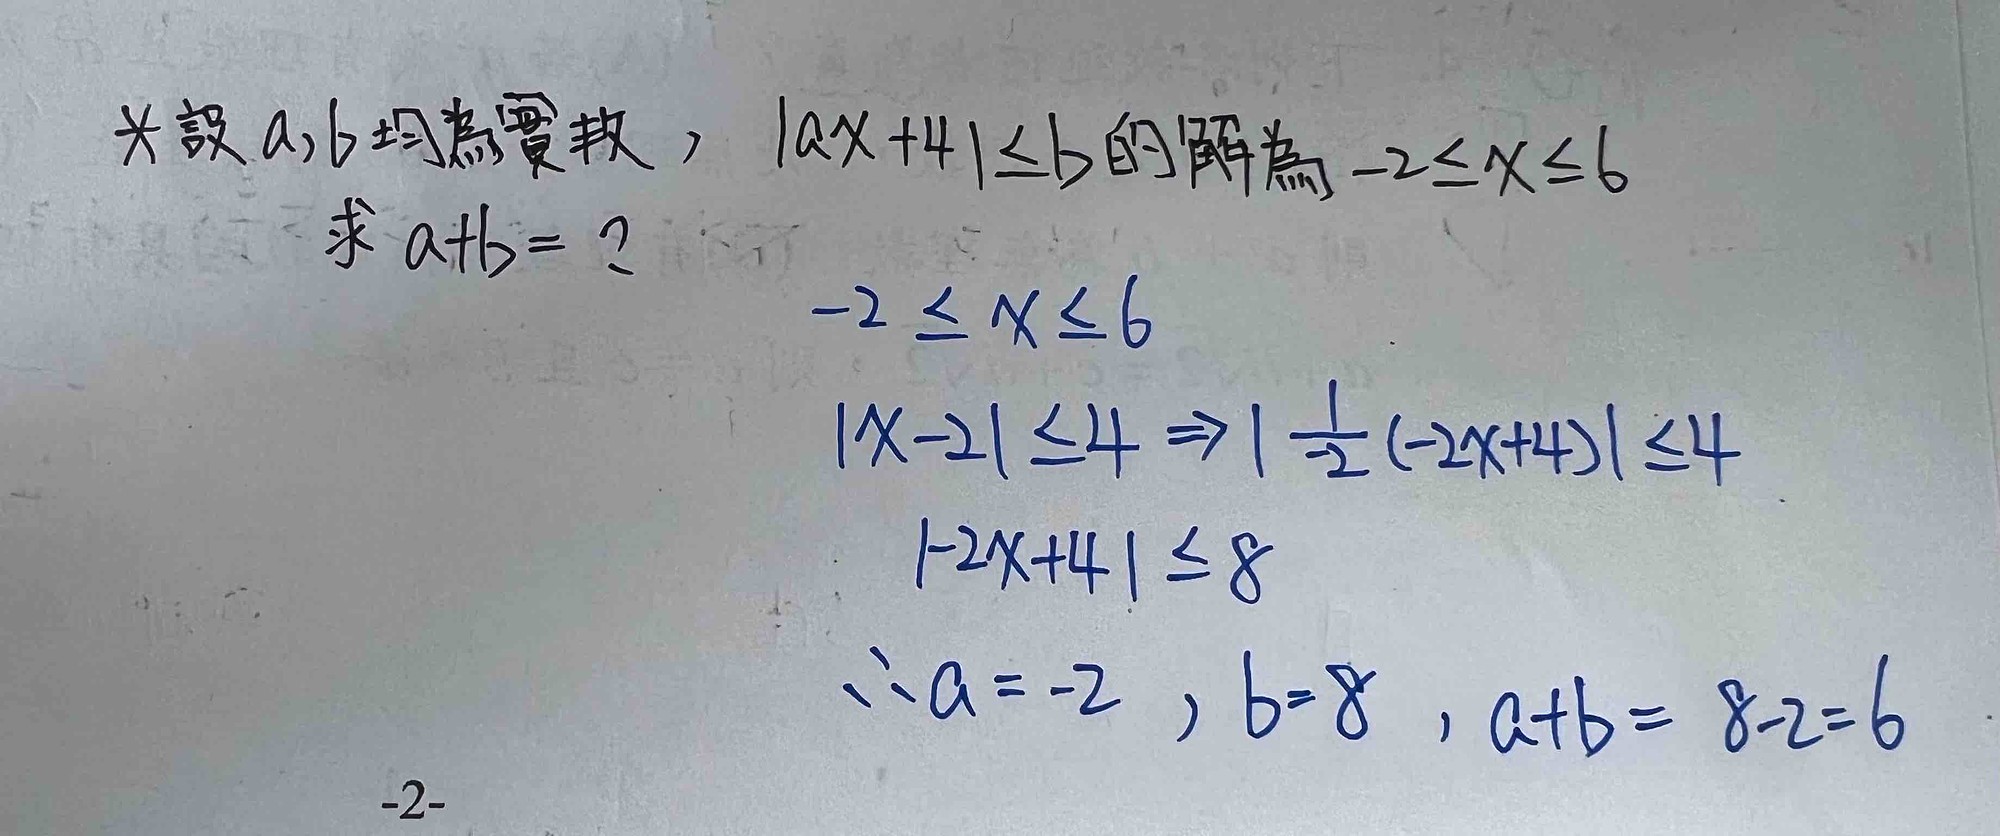 ※設a,b均為實數，|ax+4|≤b的解為-2≤x≤6
求a+b=?
-2≤x≤6
|x-2|≤4⇒|1/-2(-2x+4)|≤4
|-2x+4|≤8
∴a=-2，b=8，a+b=8-2=6
-2-